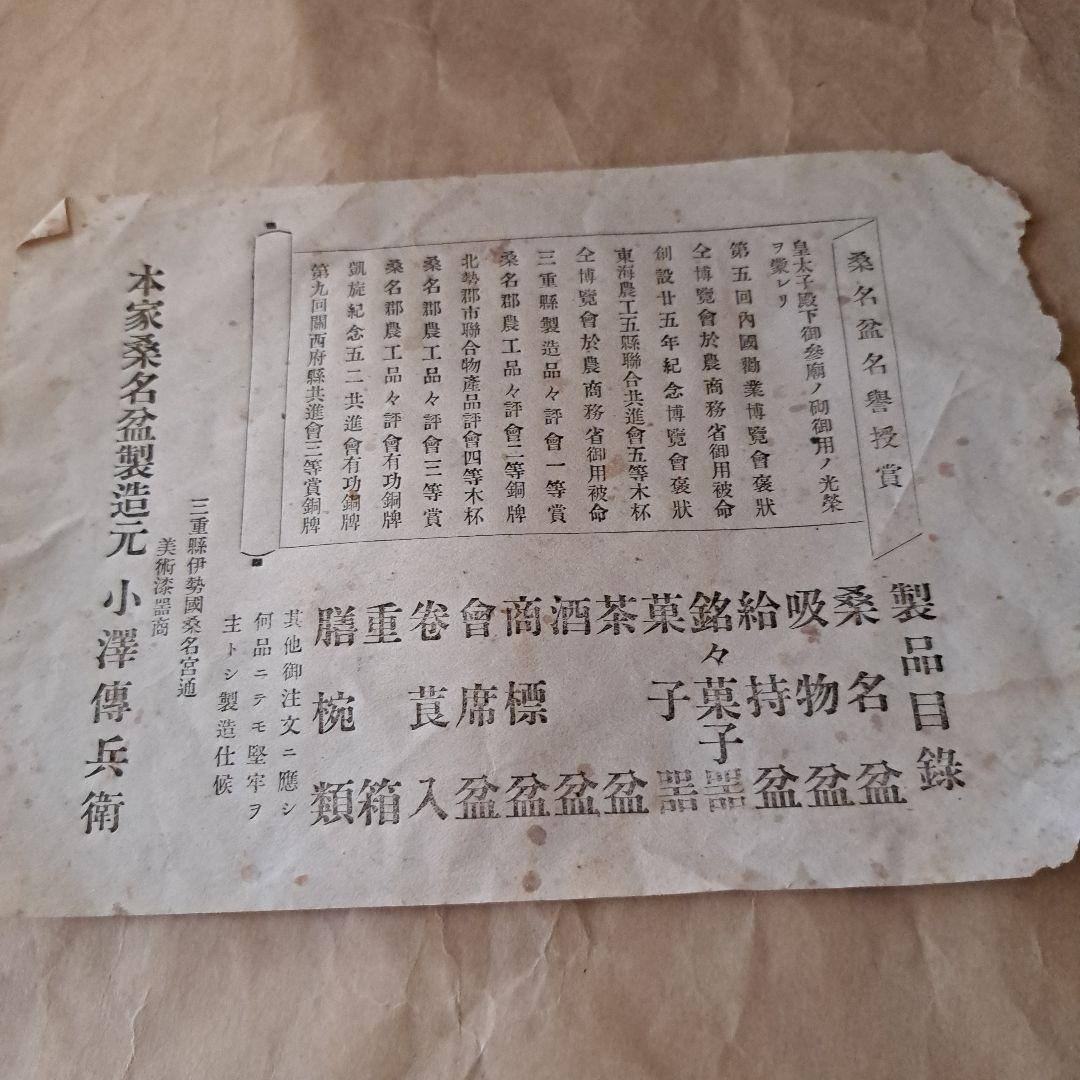 桑名盆名譽授賞
皇太子殿下御參廟ノ砌御用ノ光榮
ヲ蒙レリ
第五回內國勸業博覽會褒狀
仝博覽會於農商務省御用被命
創設廿五年紀念博覽會褒狀
東海農工五縣聯合共進會五等木杯
仝博覽會於農商務省御用被命
三重縣製造品々評會一等賞
桑名郡農工品々評會二等銅牌
北勢郡市聯合物產品評會四等木杯
桑名郡農工品々評會三等賞
桑名郡農工品々評會有功銅牌
凱旋紀念五二共進會有功銅牌
第九回關西府縣共進會三等賞銅牌
製品目錄
桑名盆
吸物盆
給持盆
銘々菓子器
菓子器
茶盆
酒盆
商標盆
會席盆
卷莨入
重箱
膳椀類
其他御注文ニ應シ
何品ニテモ堅牢ヲ
主トシ製造仕候
三重縣伊勢國桑名宮通
美術漆器商
本家桑名盆製造元 小澤傳兵衛